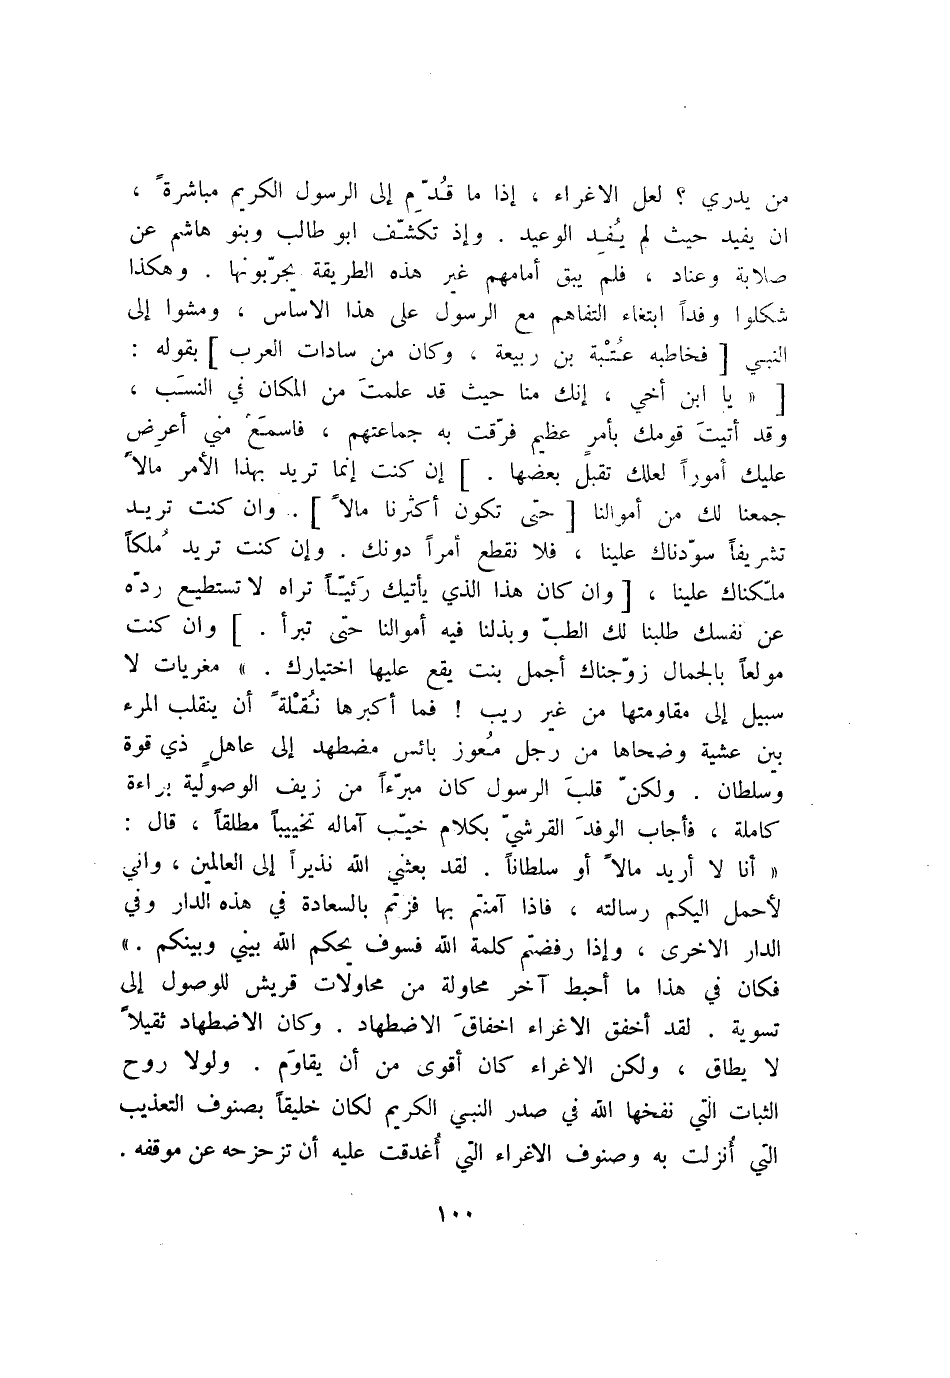 من يدري ؟ لعل الاغراء ، إذا ما قُدّم إلى الرسول الكريم مباشرةً ،
ان يفيد حيث لم يُفِد الوعيد . وإذ تكشّف ابو طالب وبنو هاشم عن
صلابة وعناد ، فلم يبق أمامهم غير هذه الطريقة يجرّبونها . وهكذا
شكلوا وفداً ابتغاء التفاهم مع الرسول على هذا الاساس ، ومشوا إلى
النبي [ فخاطبه عُتْبة بن ربيعة ، وكان من سادات العرب ] بقوله :
[ « يا ابن أخي ، إنك منا حيث قد علمتَ من المكان في النسَب ،
وقد أتيتَ قومك بأمرٍ عظيم فرّقت به جماعتهم ، فاسمَعْ مني أعرِض
عليك أموراً لعلك تقبل بعضها . ] إن كنت إنما تريد بهذا الأمر مالاً
جمعنا لك من أموالنا [ حتى تكون أكثرنا مالاً ] . وان كنت تريد
تشريفاً سوّدناك علينا ، فلا نقطع أمراً دونك . وإن كنت تريد مُلكاً
ملّكناك علينا ، [ وان كان هذا الذي يأتيك رَئيّاً تراه لا تستطيع ردّه
عن نفسك طلبنا لك الطبّ وبذلنا فيه أموالنا حتى تبرأ . ] وان كنت
مولعاً بالجمال زوّجناك أجمل بنت يقع عليها اختيارك . » مغريات لا
سبيل إلى مقاومتها من غير ريب ! فما أكبرها نُقْلةً أن ينقلب المرء
بين عشية وضحاها من رجل مُعوز بائس مضطهد إلى عاهلٍ ذي قوة
وسلطان . ولكنّ قلبَ الرسول كان مبرّءاً من زيف الوصولية براءة
كاملة ، فأجاب الوفدَ القرشيّ بكلام خيّب آماله تخييباً مطلقاً ، قال :
« أنا لا أريد مالاً أو سلطاناً . لقد بعثني الله نذيراً إلى العالمين ، واني
لأحمل اليكم رسالته ، فاذا آمنتم بها فزتم بالسعادة في هذه الدار وفي
الدار الاخرى ، وإذا رفضتم كلمة الله فسوف يحكم الله بيني وبينكم . »
فكان في هذا ما أحبط آخر محاولة من محاولات قريش للوصول إلى
تسوية . لقد أخفق الاغراء اخفاقَ الاضطهاد . وكان الاضطهاد ثقيلاً
لا يطاق ، ولكن الاغراء كان أقوى من أن يقاوَم . ولولا روح
الثبات التي نفخها الله في صدر النبي الكريم لكان خليقاً بصنوف التعذيب
التي أُنزلت به وصنوف الاغراء التي أُغدقت عليه أن تزحزحه عن موقفه .
١٠٠